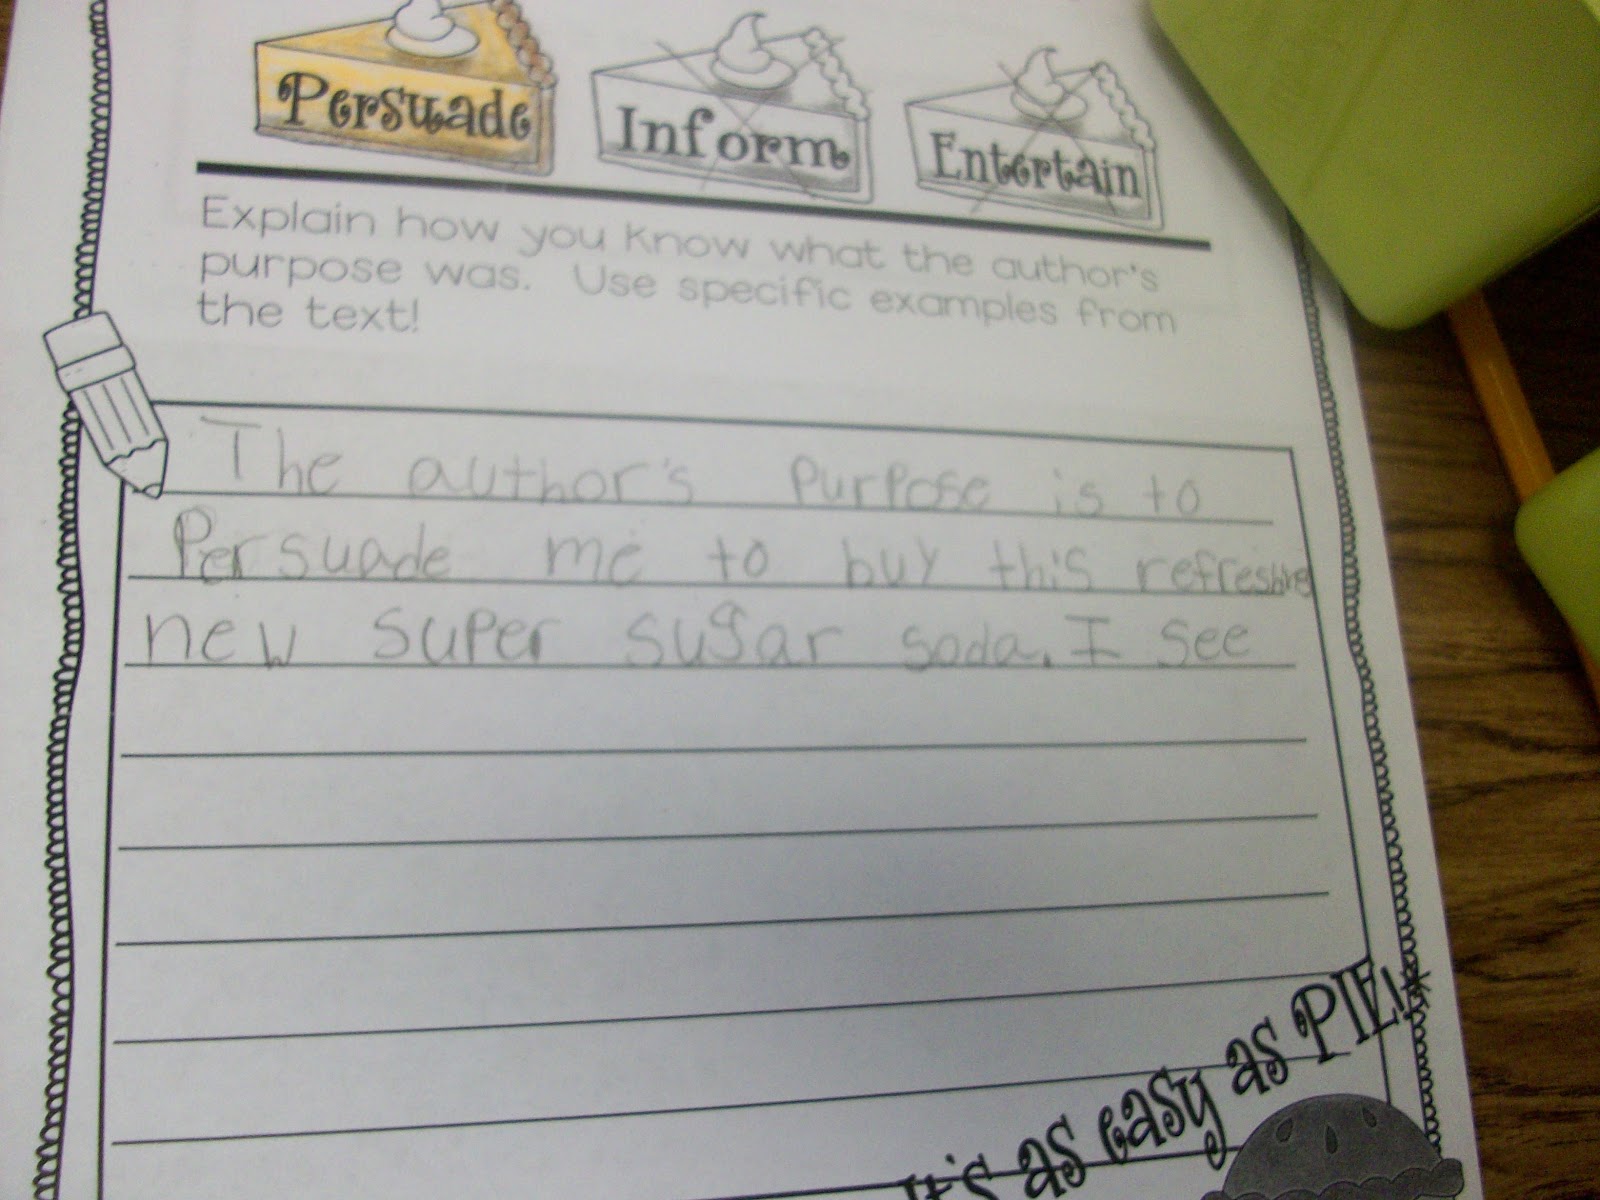 Persuade Inform Entertain
Explain how you know what the author's
purpose was. Use specific examples from
the text!
The author's purpose is to
Persuade me to buy this refreshing
new super sugar soda. I see
It's as easy as PIE!